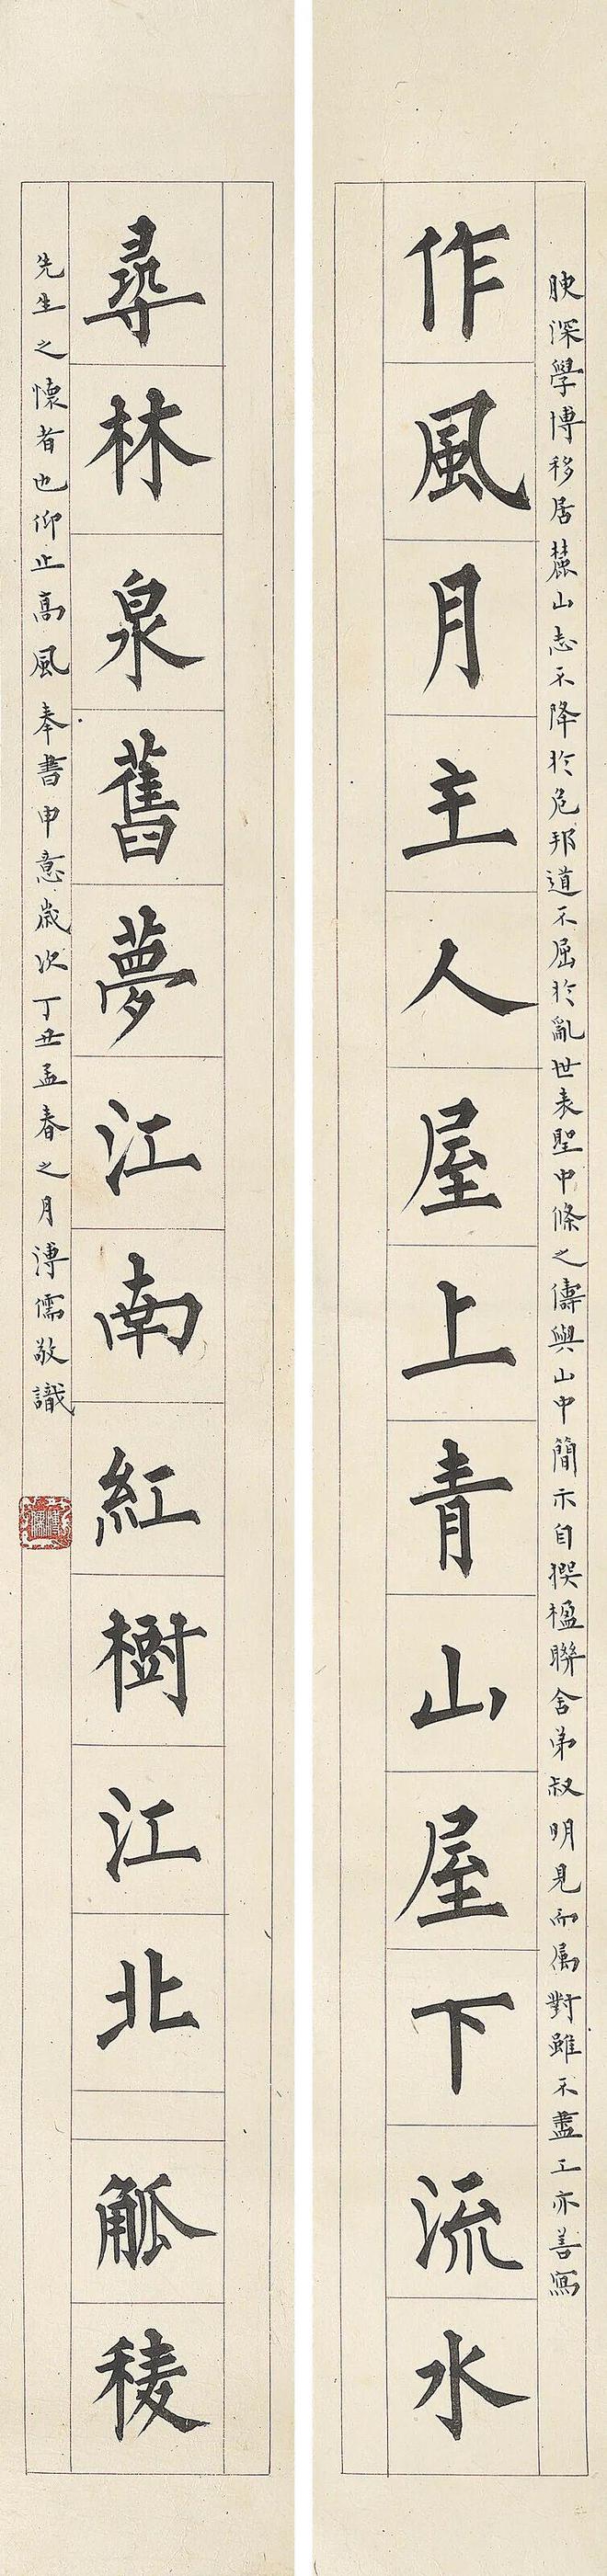 腴深學博移居麓山志不降於危邦道不屈於亂世表聖中條之儔與山中簡示自撰楹聯舍弟叔明見而属對雖不盡工亦善寫
作風月主人屋上青山屋下流水
尋林泉舊夢江南紅樹江北觚稜
先生之懷者也仰止高風奉書申意歲次丁丑孟春之月溥儒敬識